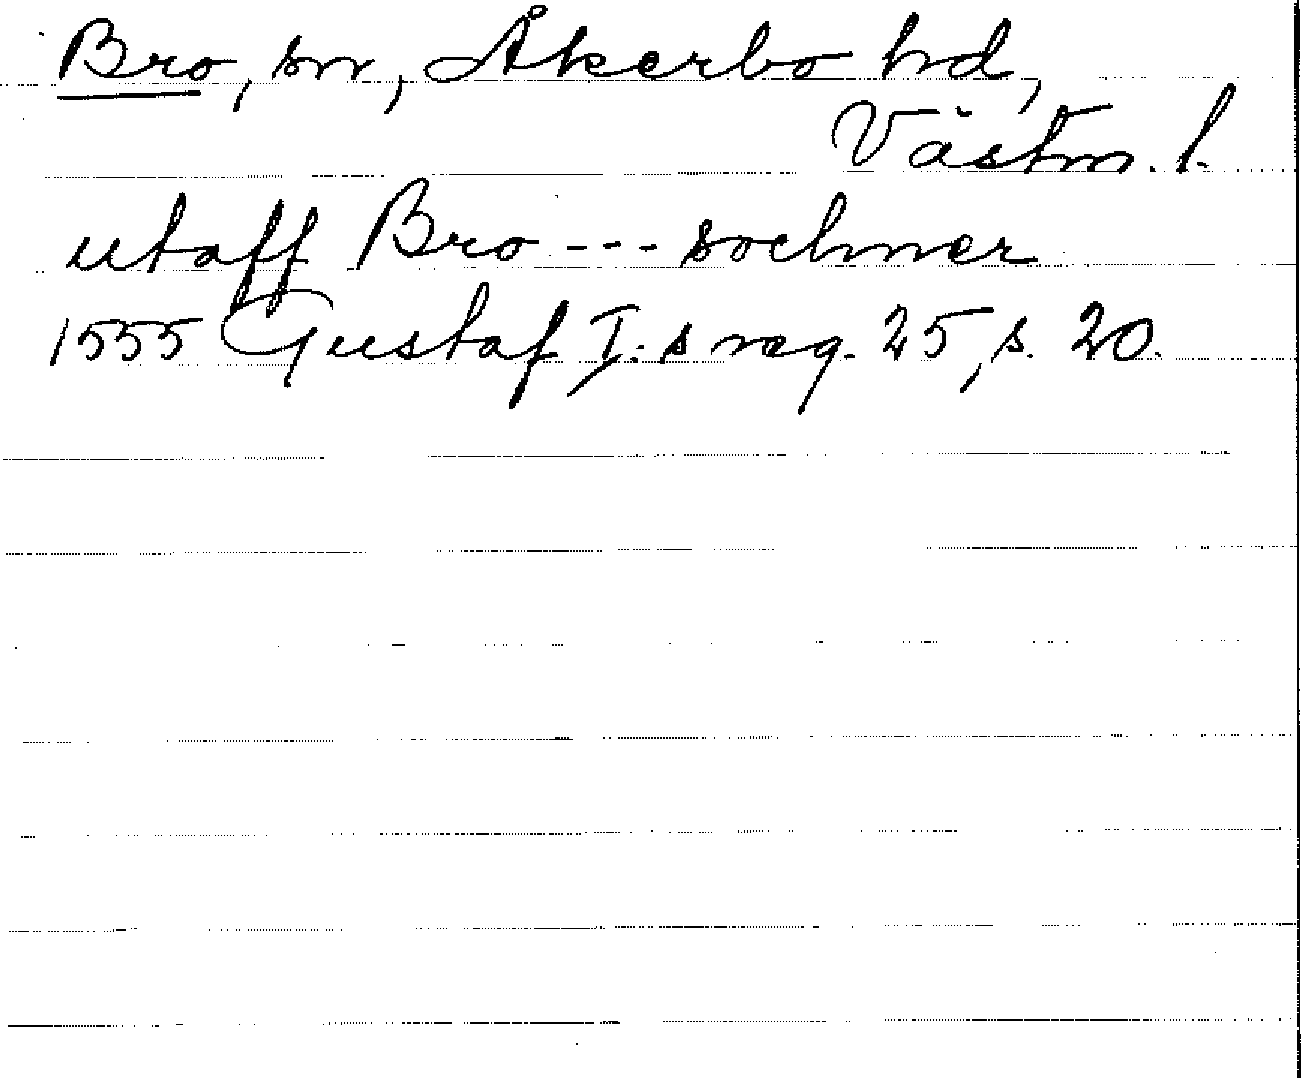 Bro, sn, Åkerbo hd,
Västm. l.
utaff Bro --- sochner
1555 Gustaf I:s reg. 25, s. 20.